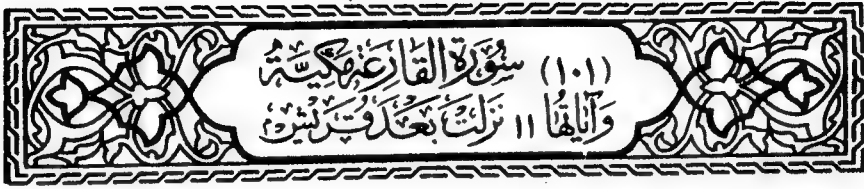 (١٠١) سُورَةُ القَارِعَةِ مَكِّيَّةٌ
وَآيَاتُهَا ١١ نَزَلَتْ بَعْدَ قُرَيْشٍ